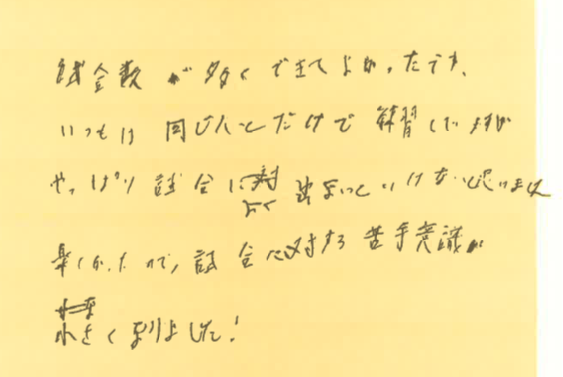 試合数が多くできてよかったです。
いつもは同じ人とだけで練習していますが
やっぱり試合に よく出ないといけないと思いました
楽しかったので、試合に対する苦手意識が
小さくなりました!